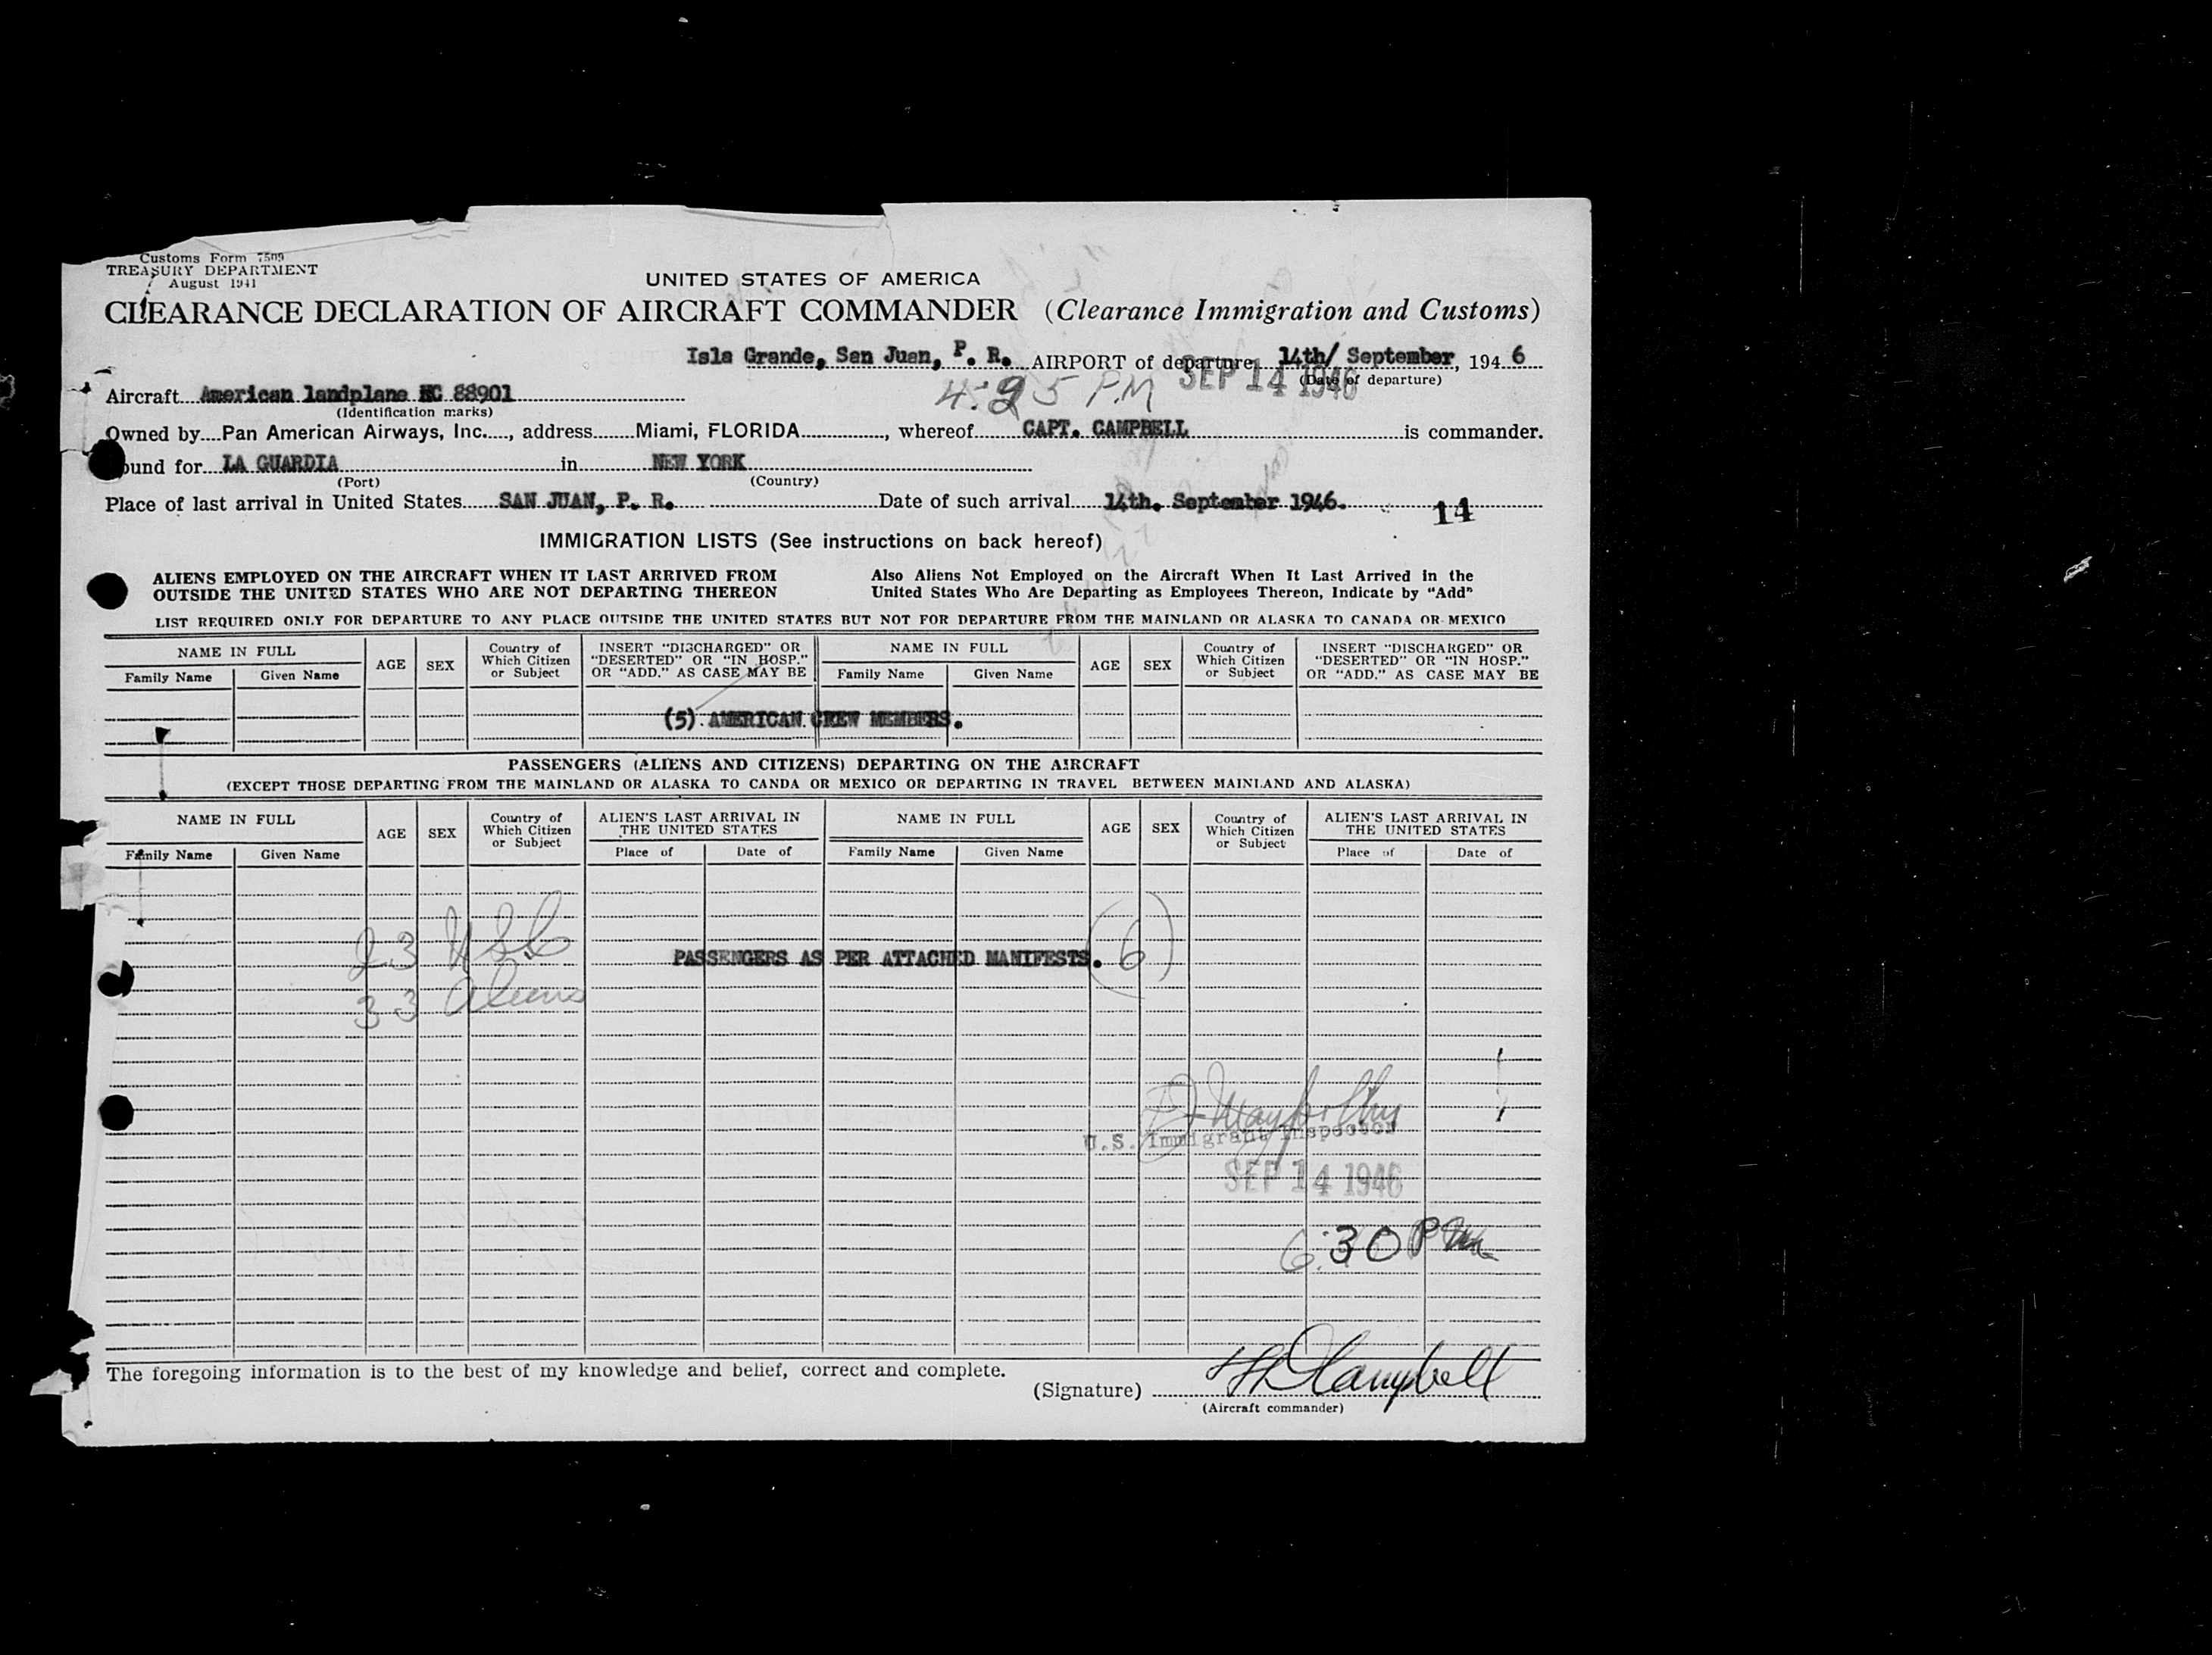 Customs Form 7509
TREASURY DEPARTMENT
August 1941
UNITED STATES OF AMERICA
CLEARANCE DECLARATION OF AIRCRAFT COMMANDER (Clearance Immigration and Customs)
Isla Grande, San Juan, P. R. AIRPORT of departure 14th/ September, 1946
(Date of departure)
SEP 14 1946
4:25 P.M
Aircraft American landplane NC 88901
(Identification marks)
Owned by Pan American Airways, Inc., address Miami, FLORIDA, whereof CAPT. CAMPBELL is commander.
ound for LA GUARDIA in NEW YORK
(Port) (Country)
Place of last arrival in United States SAN JUAN, P. R. Date of such arrival 14th. September 1946.
14
IMMIGRATION LISTS (See instructions on back hereof)
ALIENS EMPLOYED ON THE AIRCRAFT WHEN IT LAST ARRIVED FROM
OUTSIDE THE UNITED STATES WHO ARE NOT DEPARTING THEREON
Also Aliens Not Employed on the Aircraft When It Last Arrived in the
United States Who Are Departing as Employees Thereon, Indicate by "Add"
LIST REQUIRED ONLY FOR DEPARTURE TO ANY PLACE OUTSIDE THE UNITED STATES BUT NOT FOR DEPARTURE FROM THE MAINLAND OR ALASKA TO CANADA OR MEXICO
NAME IN FULL AGE SEX Country of Which Citizen or Subject INSERT "DISCHARGED" OR "DESERTED" OR "IN HOSP." OR "ADD." AS CASE MAY BE NAME IN FULL AGE SEX Country of Which Citizen or Subject INSERT "DISCHARGED" OR "DESERTED" OR "IN HOSP." OR "ADD." AS CASE MAY BE
Family Name Given Name Family Name Given Name
(5) AMERICAN CREW MEMBERS.
PASSENGERS (ALIENS AND CITIZENS) DEPARTING ON THE AIRCRAFT
(EXCEPT THOSE DEPARTING FROM THE MAINLAND OR ALASKA TO CANDA OR MEXICO OR DEPARTING IN TRAVEL BETWEEN MAINLAND AND ALASKA)
NAME IN FULL AGE SEX Country of Which Citizen or Subject ALIEN'S LAST ARRIVAL IN THE UNITED STATES NAME IN FULL AGE SEX Country of Which Citizen or Subject ALIEN'S LAST ARRIVAL IN THE UNITED STATES
Family Name Given Name Place of Date of Family Name Given Name Place of Date of
23 USC
PASSENGERS AS PER ATTACHED MANIFESTS. (6)
33 Aliens
U.S. Immigrant Inspector
SEP 14 1946
6:30 PM
The foregoing information is to the best of my knowledge and belief, correct and complete.
(Signature) Campbell
(Aircraft commander)